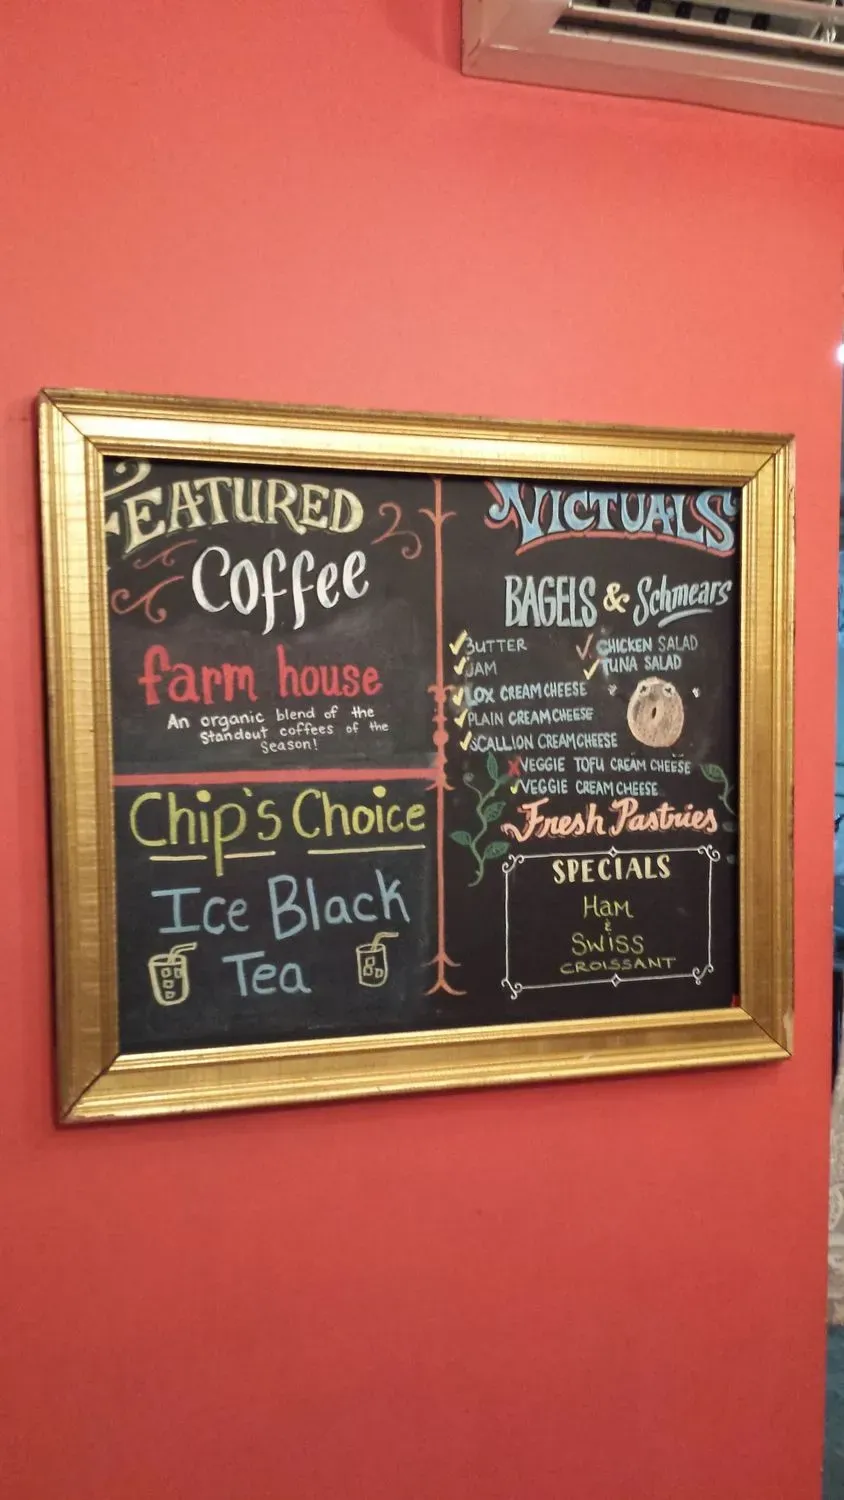 FEATURED
Coffee
farm house
An organic blend of the
standout coffees of the
season!
Chip's Choice
Ice Black
Tea
VICTUALS
BAGELS & Schmears
BUTTER
JAM
LOX CREAM CHEESE
PLAIN CREAM CHEESE
SCALLION CREAM CHEESE
CHICKEN SALAD
TUNA SALAD
VEGGIE TOFU CREAM CHEESE
VEGGIE CREAM CHEESE
Fresh Pastries
SPECIALS
Ham
&
SWISS
CROISSANT